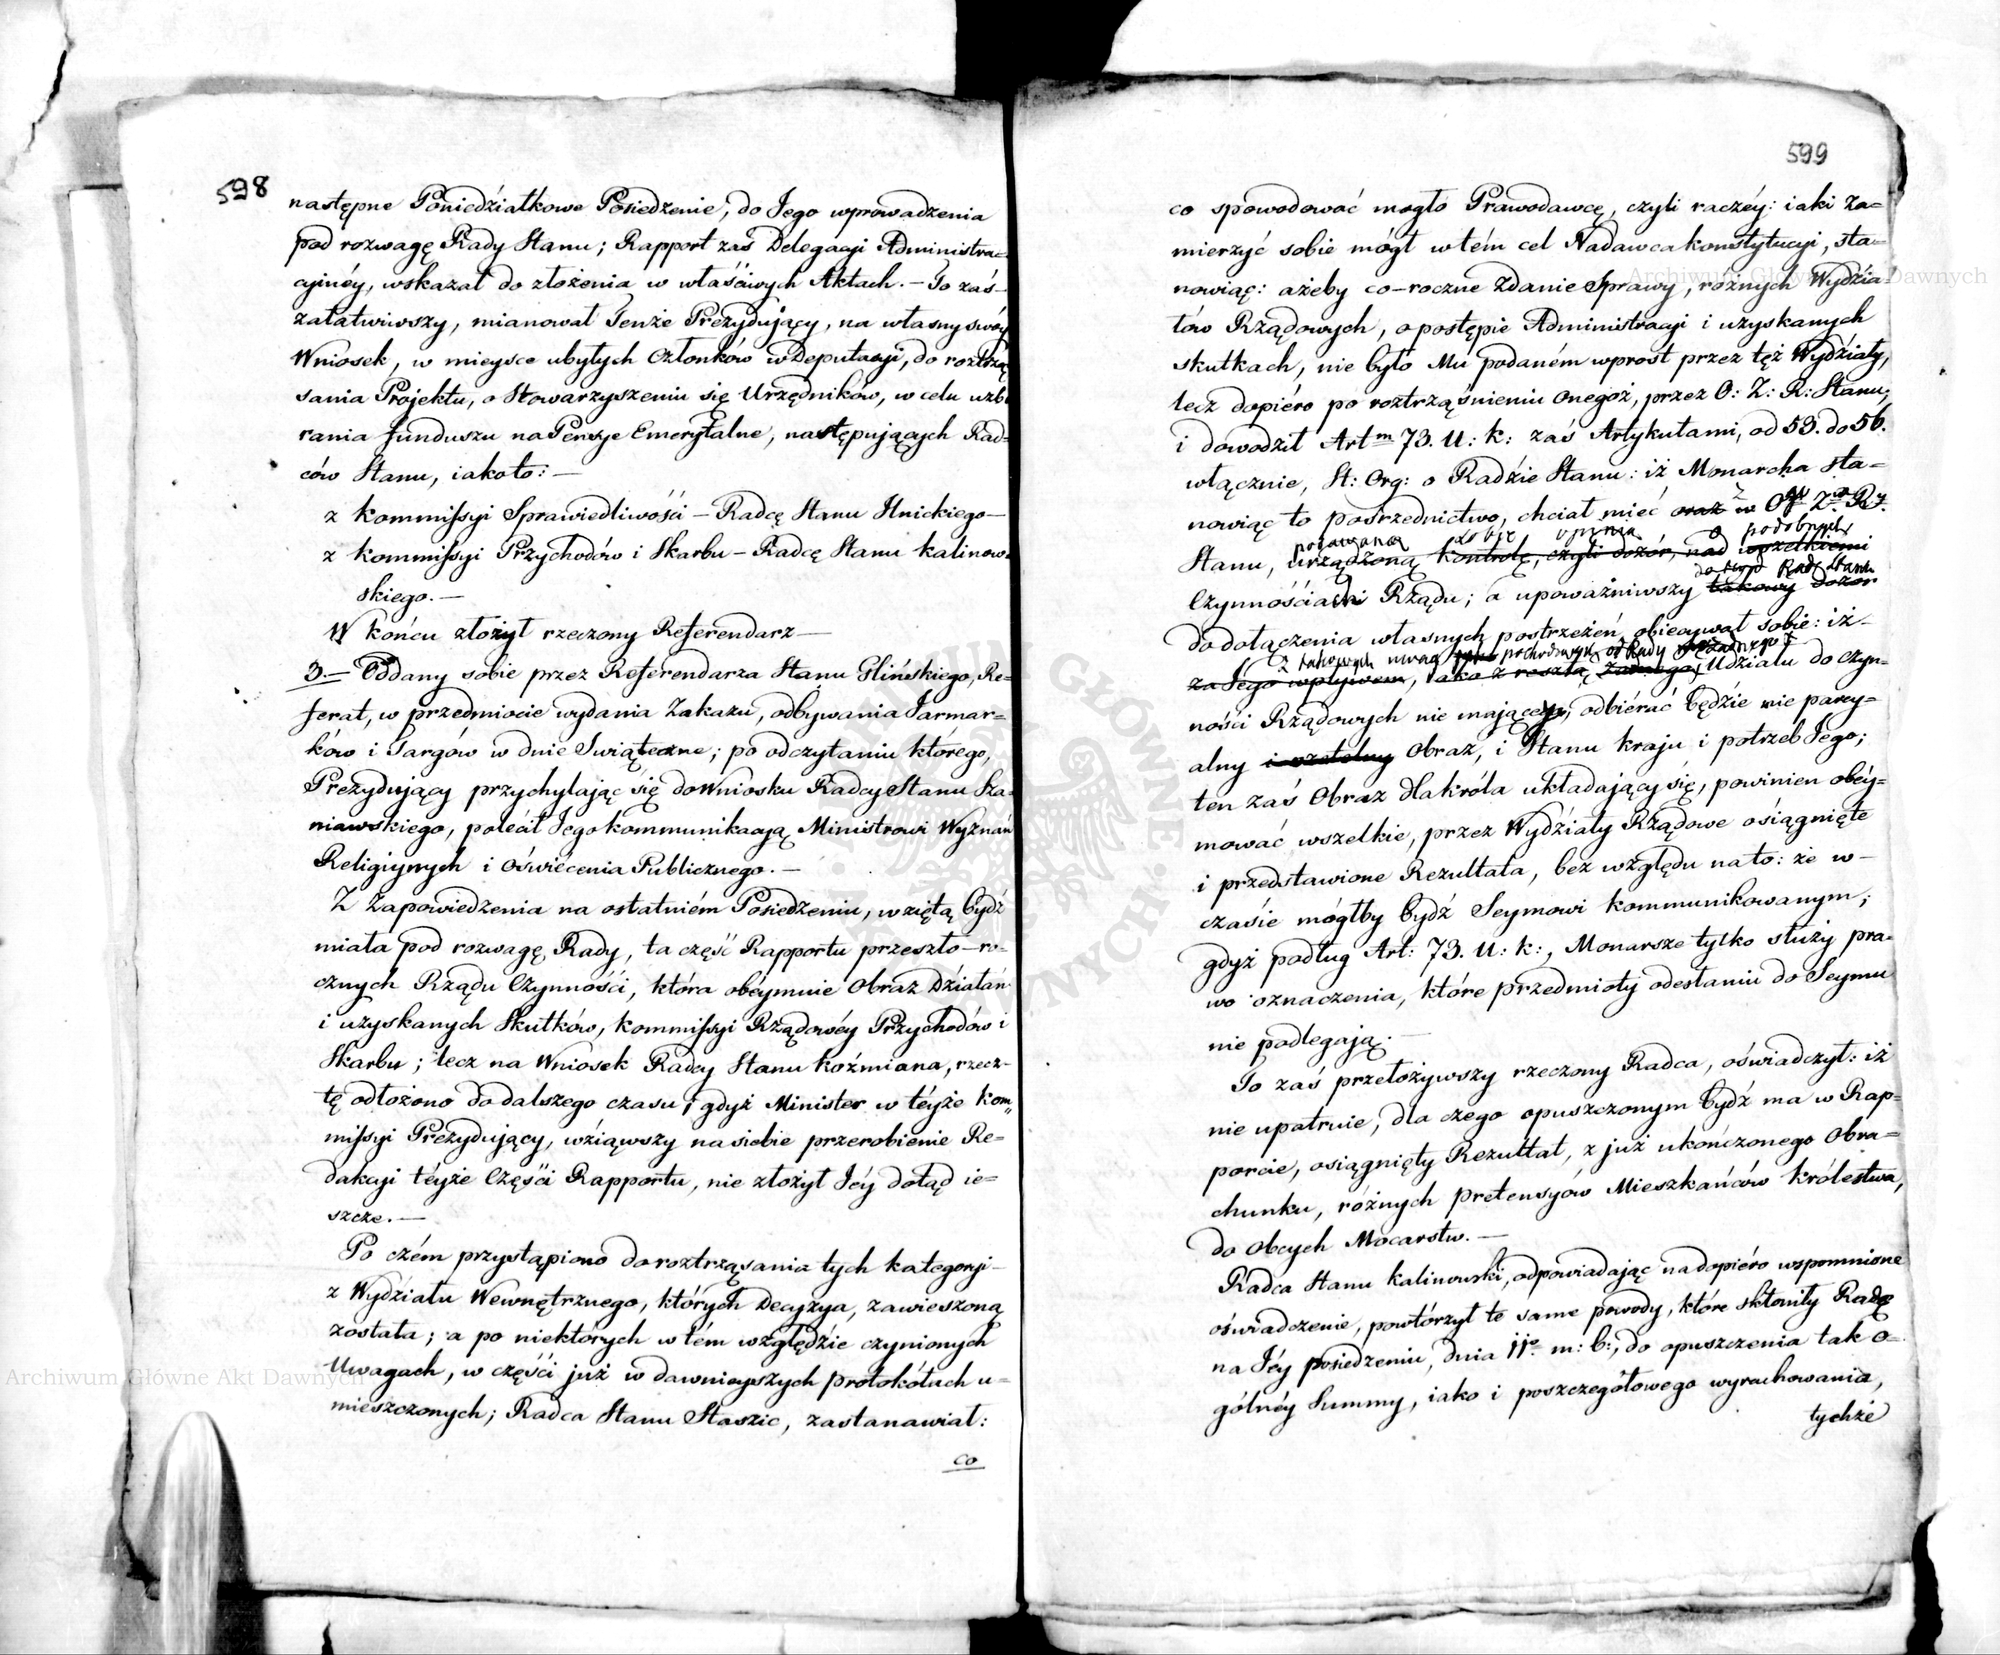 598
następne Poniedziałkowe Posiedzenie, do Jego wprowadzenia
pod rozwagę Rady Stanu; Rapport zaś Delegacyi Administra=
cyinéy, wskazał do złożenia w właściwych Aktach. — To zaś
załatwiwszy, mianował Tenże Prezydujący, na własny swóy
Wniosek, w mieysce ubyłych Członków w Deputacyi, do roztrzą
sania Projektu, o Stowarzyszeniu się Urzędników, w celu uzbi
rania funduszu na Pensye Emerytalne, następujących Rad=
ców Stanu, iakoto: —
z Kommissyi Sprawiedliwości — Radcę Stanu Hnickiego —
z Kommissyi Przychodów i Skarbu — Radcę Stanu Kalinow=
skiego. —
W końcu złożył rzeczony Referendarz —
3. — Oddany sobie przez Referendarza Stanu Glińskiego, Re=
ferat, w przedmiocie wydania Zakazu, odbywania Jarmar=
ków i Targów w dnie Swiąteczne; po odczytaniu którego,
Prezydujący przychylając się do Wniosku Radcy Stanu Sza=
niawskiego, polécił Jego kommunikacyą Ministrowi Wyznań
Religiynych i Oświécenia Publicznego. —
Z Zapowiedzenia na ostatniém Posiedzeniu, wziętą bydź
miała pod rozwagę Rady, ta część Rapportu przeszło-ro=
cznych Rządu Czynności, która obéymuie Obraz Działań
i uzyskanych Skutków, Kommissyi Rządowéy Przychodów i
Skarbu; lecz na Wniosek Radcy Stanu Koźmiana, rzecz
tę odłożono do dalszego czasu; gdyż Minister w téyże Kom„
missyi Prezydujący, wziąwszy na siebie przerobienie Re=
dakcyi téyże Części Rapportu, nie złożył Jéy dotąd ie=
szcze. —
Po czém przystąpiono do roztrząsania tych kategoryi
z Wydziału Wewnętrznego, których Decyzya, zawieszoną
została; a po niektórych w tém względzie czynionych
Uwagach, w części już w dawnieyszych protokółach u=
mieszczonych; Radca Stanu Staszic, zastanawiał:
co
599
co spowodować mogło Prawodawcę, czyli raczéy: iaki za=
mierzyć sobie mógł w tém cel Nadawca konstytucyi, sta=
nowiąc: ażeby co-roczne Zdanie Sprawy, rożnych Wydzia=
łów Rządowych, o postępie Administracyi i uzyskanych
skutkach, nie było Mu podaném wprost przez też Wydziały,
lecz dopiéro po roztrząśnieniu onegoż, przez O: Z: R: Stanu;
i dowodził Artm 73. U: K: zaś Artykułami, od 53. do 56.
włącznie, St: Org: o Radzie Stanu: iż Monarcha sta=
nowiąc to postrzednictwo, chciał mieć oraz w Ogu Zu Ry
podawaną sobie opinią o podobnych
Stanu, urządzoną kontrolę, czyli dozór, nad wszelkiemi
dotąd Rady Stanu
Czynnościach Rządu; a upoważniwszy takowy dozór
do dołączenia własnych postrzeżeń, obiecywał sobie: iż
z takowych uwag pochodzących od Rady
za Jego wpływem, iako z resztą żadnego, Udziału do czyn=
ności Rządowych nie mającego, odbiérać będzie nie parcy=
alny i rzetelny Obraz, i Stanu kraju i potrzeb Jego;
ten zaś Obraz dla króla układający się, powinien obéy=
mować wszelkie, przez Wydziały Rządowe osiągnięte
i przedstawione Rezultata, bez względu na to: że w
czasie mógłby bydź Seymowi kommunikowanym;
gdyż podług Art: 73. U: K:, Monarsze tylko służy pra=
wo oznaczenia, które przedmioty odesłaniu do Seymu
nie podlegają. —
To zaś przełożywszy rzeczony Radca, oświadczył: iż
nie upatruie, dla czego opuszczonym bydź ma w Rap=
porcie, osiągnięty Rezultat, z już ukończonego Obra=
chunku, różnych pretensyów Mieszkańców Królestwa,
do Obcych Mocarstw. —
Radca Stanu Kalinowski, odpowiadając na dopiéro wspomnione
oświadczenie, powtórzył te same powody, które skłoniły Radę
na Jéy posiedzeniu, dnia 11go m: b:, do opuszczenia tak o=
gólnéy Summy, iako i poszczegółowego wyrachowania,
tychże